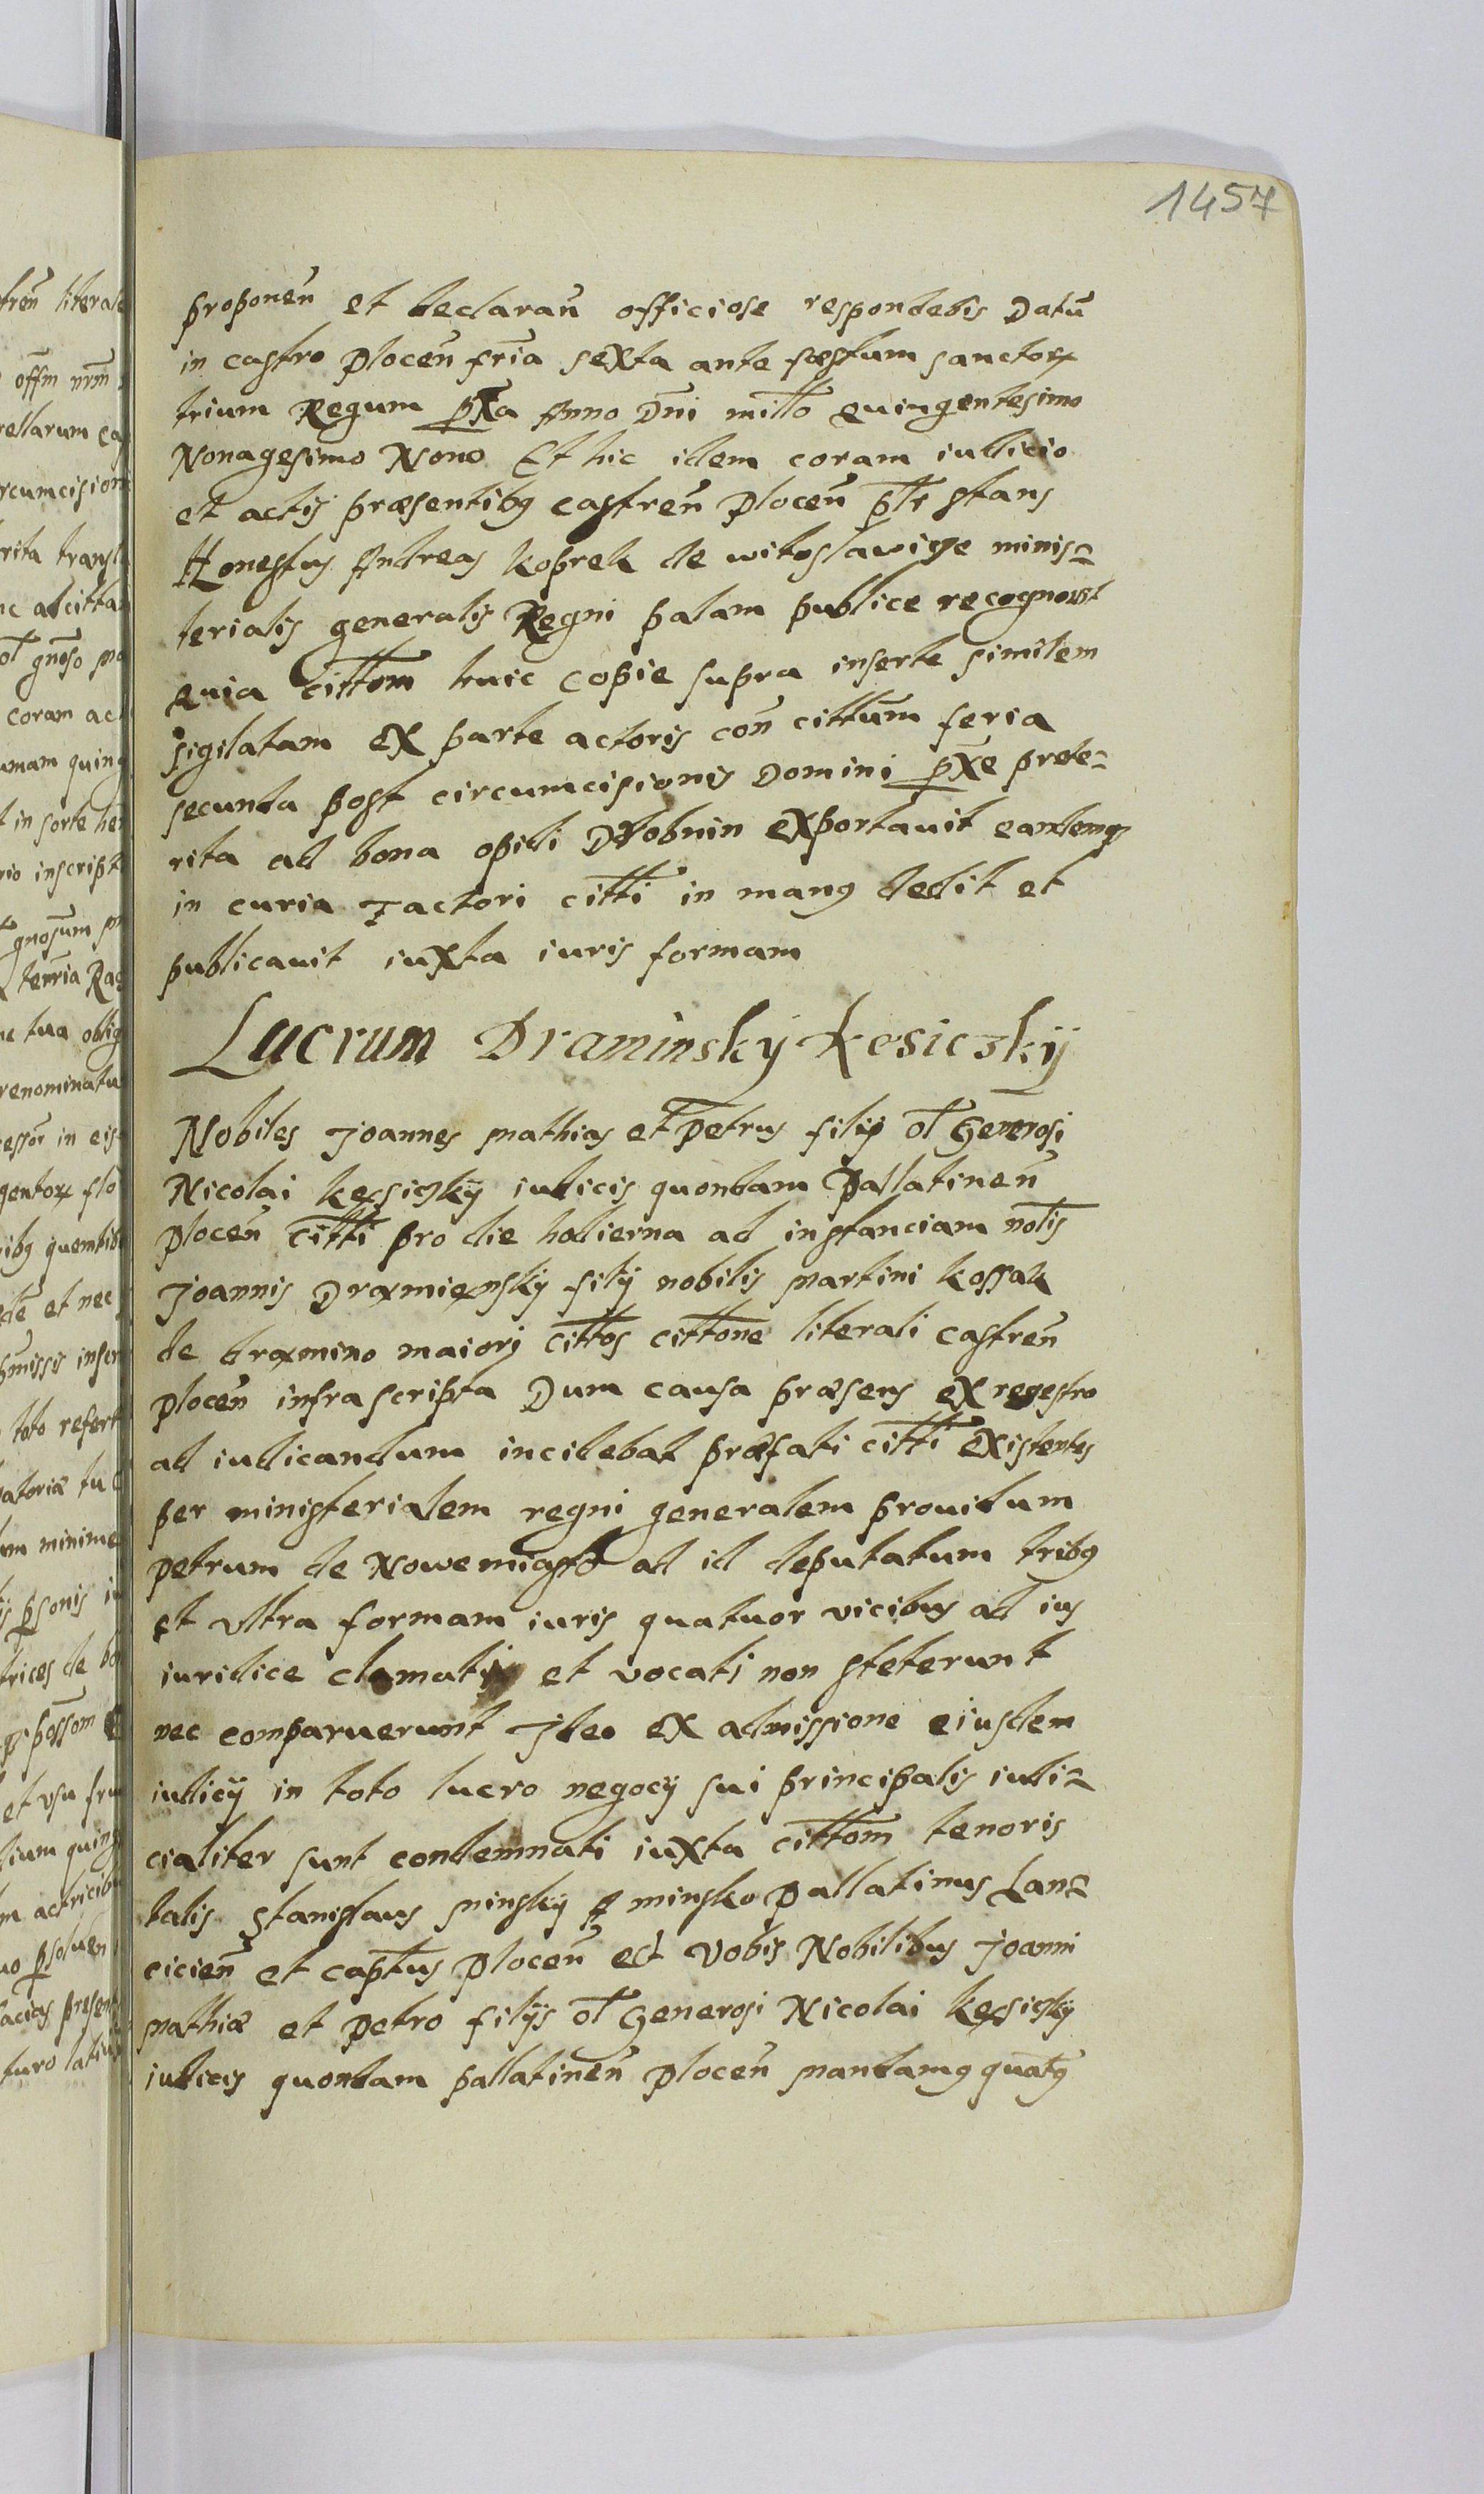 1457
proponen̄ et declaran̄ officiose respondebis Datū
in castro plocen̄ fria sexta ante fæstum sanctorꝝ
trium Regum pxa Anno Dni millo Quingentesimo
Nonagesimo Nono Et hic idem coram iudicio
et actis præsentibꝰ castren̄ plocen̄ plr stans
Honestus Andreas koprek de witoslawicze minis=
terialis generalis Regni palam publice recognovit
Quia cittom huic copie supra inserte similem
sigilatam ex parte actoris con̄ cittum feria
secunda post circumcisionis Domini pxe prete=
rita ad bona opidi Drobnin exportavit eandemqꝫ
in curia Factori citti in manꝰ dedit et
publicauit iuxta iuris formam
Lucrum Draminskÿ Kesiczkÿ
Nobiles Joannes mathias et Petrus filij ol Generosi
Nicolai kęsiczkÿ iudicis quondam Pallatinen̄
plocen̄ citti pro die hodierna ad instanciam nolis
Joannis Drąmięnskÿ filÿ nobilis martini kossak
de drąmino maiori cittos cittone literali castren̄
plocen̄ infra scripta Dum causa præsens ex regestro
ad iudicandum incidebat præfati citti existentes
per ministerialem regni generalem prouidum
petrum de Nowemiasto ad id deputatum tribꝰ
et vltra formam iuris quatuor vicibus ad ius
iuridice clamati et vocati non steterunt
nec comparuerunt Ideo ex admissione eiusdem
iudicÿ in toto lucro negocÿ sui principalis iudi=
cialiter sunt condemnati iuxta cittom tenoris
talis Stanislaus minskÿ de minsko Pallatinus Lan=
cicien̄ et captus plocen̄ ect Vobis Nobilibus Joanni
mathiæ et petro filÿs ol Generosi Nicolai kęsiczkÿ
iudicis quondam pallatinen̄ plocen̄ mandamꝰ quatꝰ